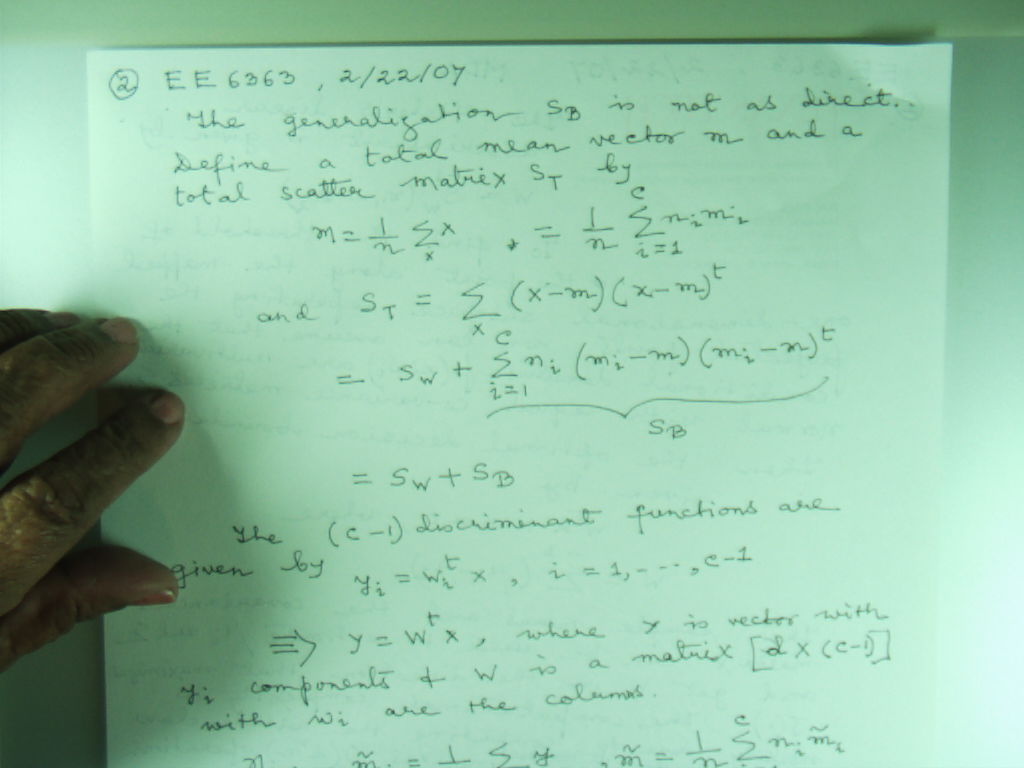 ② EE6363, 2/22/07
The generalization S_B is not as direct.
Define a total mean vector m and a
total scatter matrix S_T by
m = 1/n Σ_x x, = 1/n Σ_{i=1}^{c} n_i m_i
and S_T = Σ_x (x-m)(x-m)^t
= S_W + Σ_{i=1}^{c} n_i (m_i-m)(m_i-m)^t
S_B
= S_W + S_B
The (c-1) discriminant functions are
given by y_i = w_i^t x, i = 1,---,c-1
⇒ y = W^t x, where y is vector with
y_i components & W is a matrix [d x (c-1)]
with w_i are the columns.
m̃ = 1 Σ y, m̃ = 1/n Σ^c n_i m̃_i